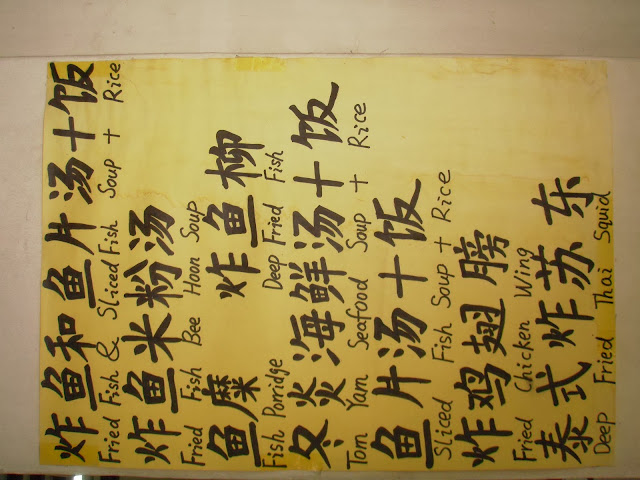 炸鱼和鱼片汤+饭
Fried Fish & Sliced Fish Soup + Rice
炸鱼米粉汤
Fried Fish Bee Hoon Soup
鱼糜 炸鱼柳
Fish Porridge Deep Fried Fish
冬炎海鲜汤+饭
Tom Yam Seafood Soup + Rice
鱼片汤+饭
Sliced Fish Soup + Rice
炸鸡翅膀
Fried Chicken Wing
泰式炸苏东
Deep Fried Thai Squid